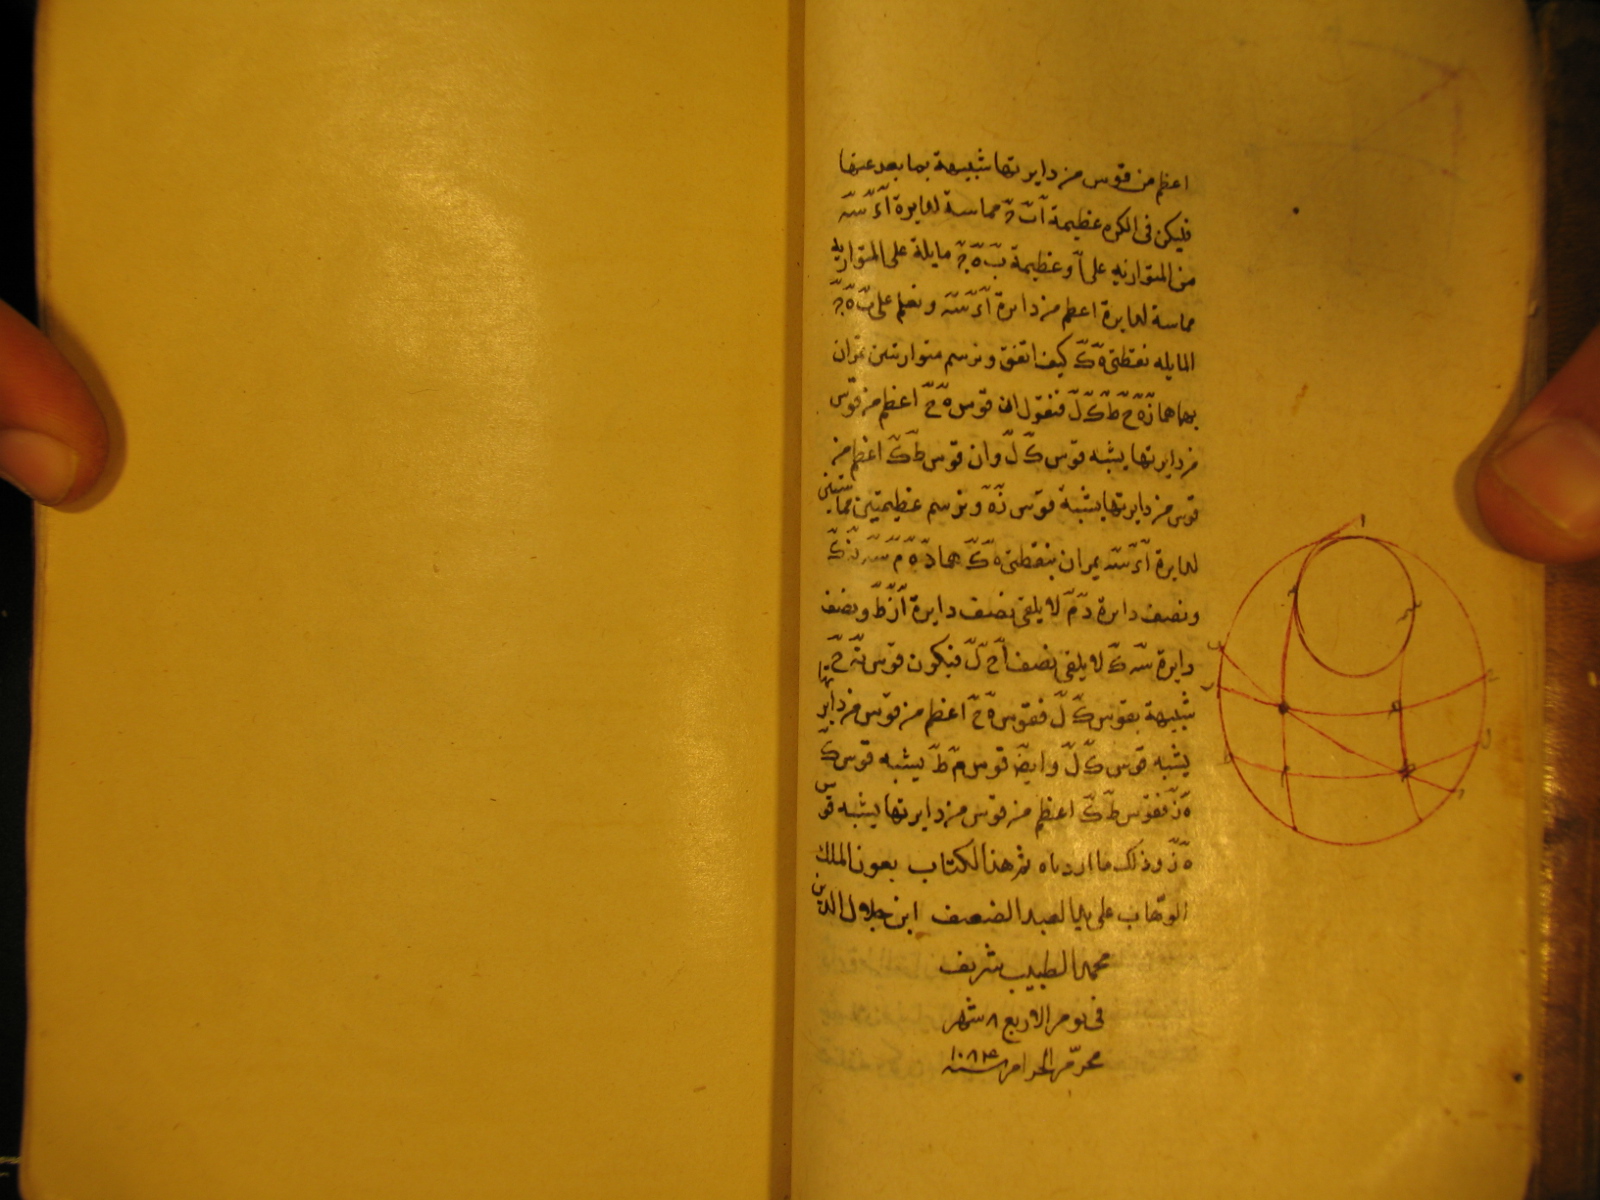 اعظم من قوس من دايرتها شبيهة بما بعد عنها
فليكن فى الكره عظيمة اٮ ج مماسة لدايرة ا ر سه
من المتوازيه على ا وعظيمة ب ه ج مايلة على المتوازيه
مماسة لدايرة اعظم من دايرة ا ر سه ونعلم على ب ه ج
المايله نقطتى ه ك كيف اتفق ونرسم متوازيتين تمران
بهما هما ز ه ح ط ك ل فنقول ان قوس ه ح اعظم من قوس
من دايرتها يشبه قوس ك ل وان قوس ط ك اعظم من
قوس من دايرتها يشبه قوس ز ه ونرسم عظيمتين مماستين
لدايرة ا ر سه يمران بنقطتى ه ك هما د ه م سه ن ك
ونصف دايرة د م لا يلقى نصف دايرة ا ز ط ونصف
دايرة سه ك لا يلقى نصف ا ح ل فيكون قوس نه ح
شبيهة بقوس ك ل فقوس ه ح اعظم من قوس من دايرتها
يشبه قوس ك ل وايضا قوس م ط يشبه قوس
ه ز فقوس ط ك اعظم من قوس من دايرتها يشبه قوس
ه ز وذلك ما اردناه تم هذا الكتاب بعون الملك
الوهاب على يد العبد الضعيف ابن جلال الدين
محمد الطبيب شريف
فى يوم الاربع ٨ شهر
محرم الحرام سنه ١٠٨٤